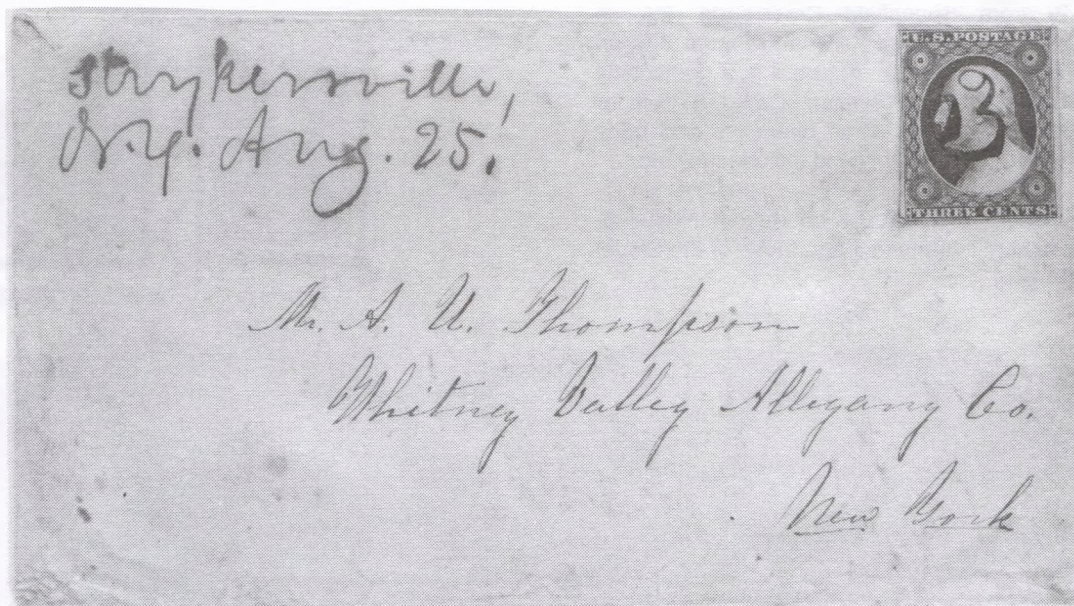 Strykersville,
N.Y. Aug. 25.
U.S. POSTAGE
3
THREE CENTS
Mr. A. U. Thompson
Whitney Valley Allegany Co.
New York